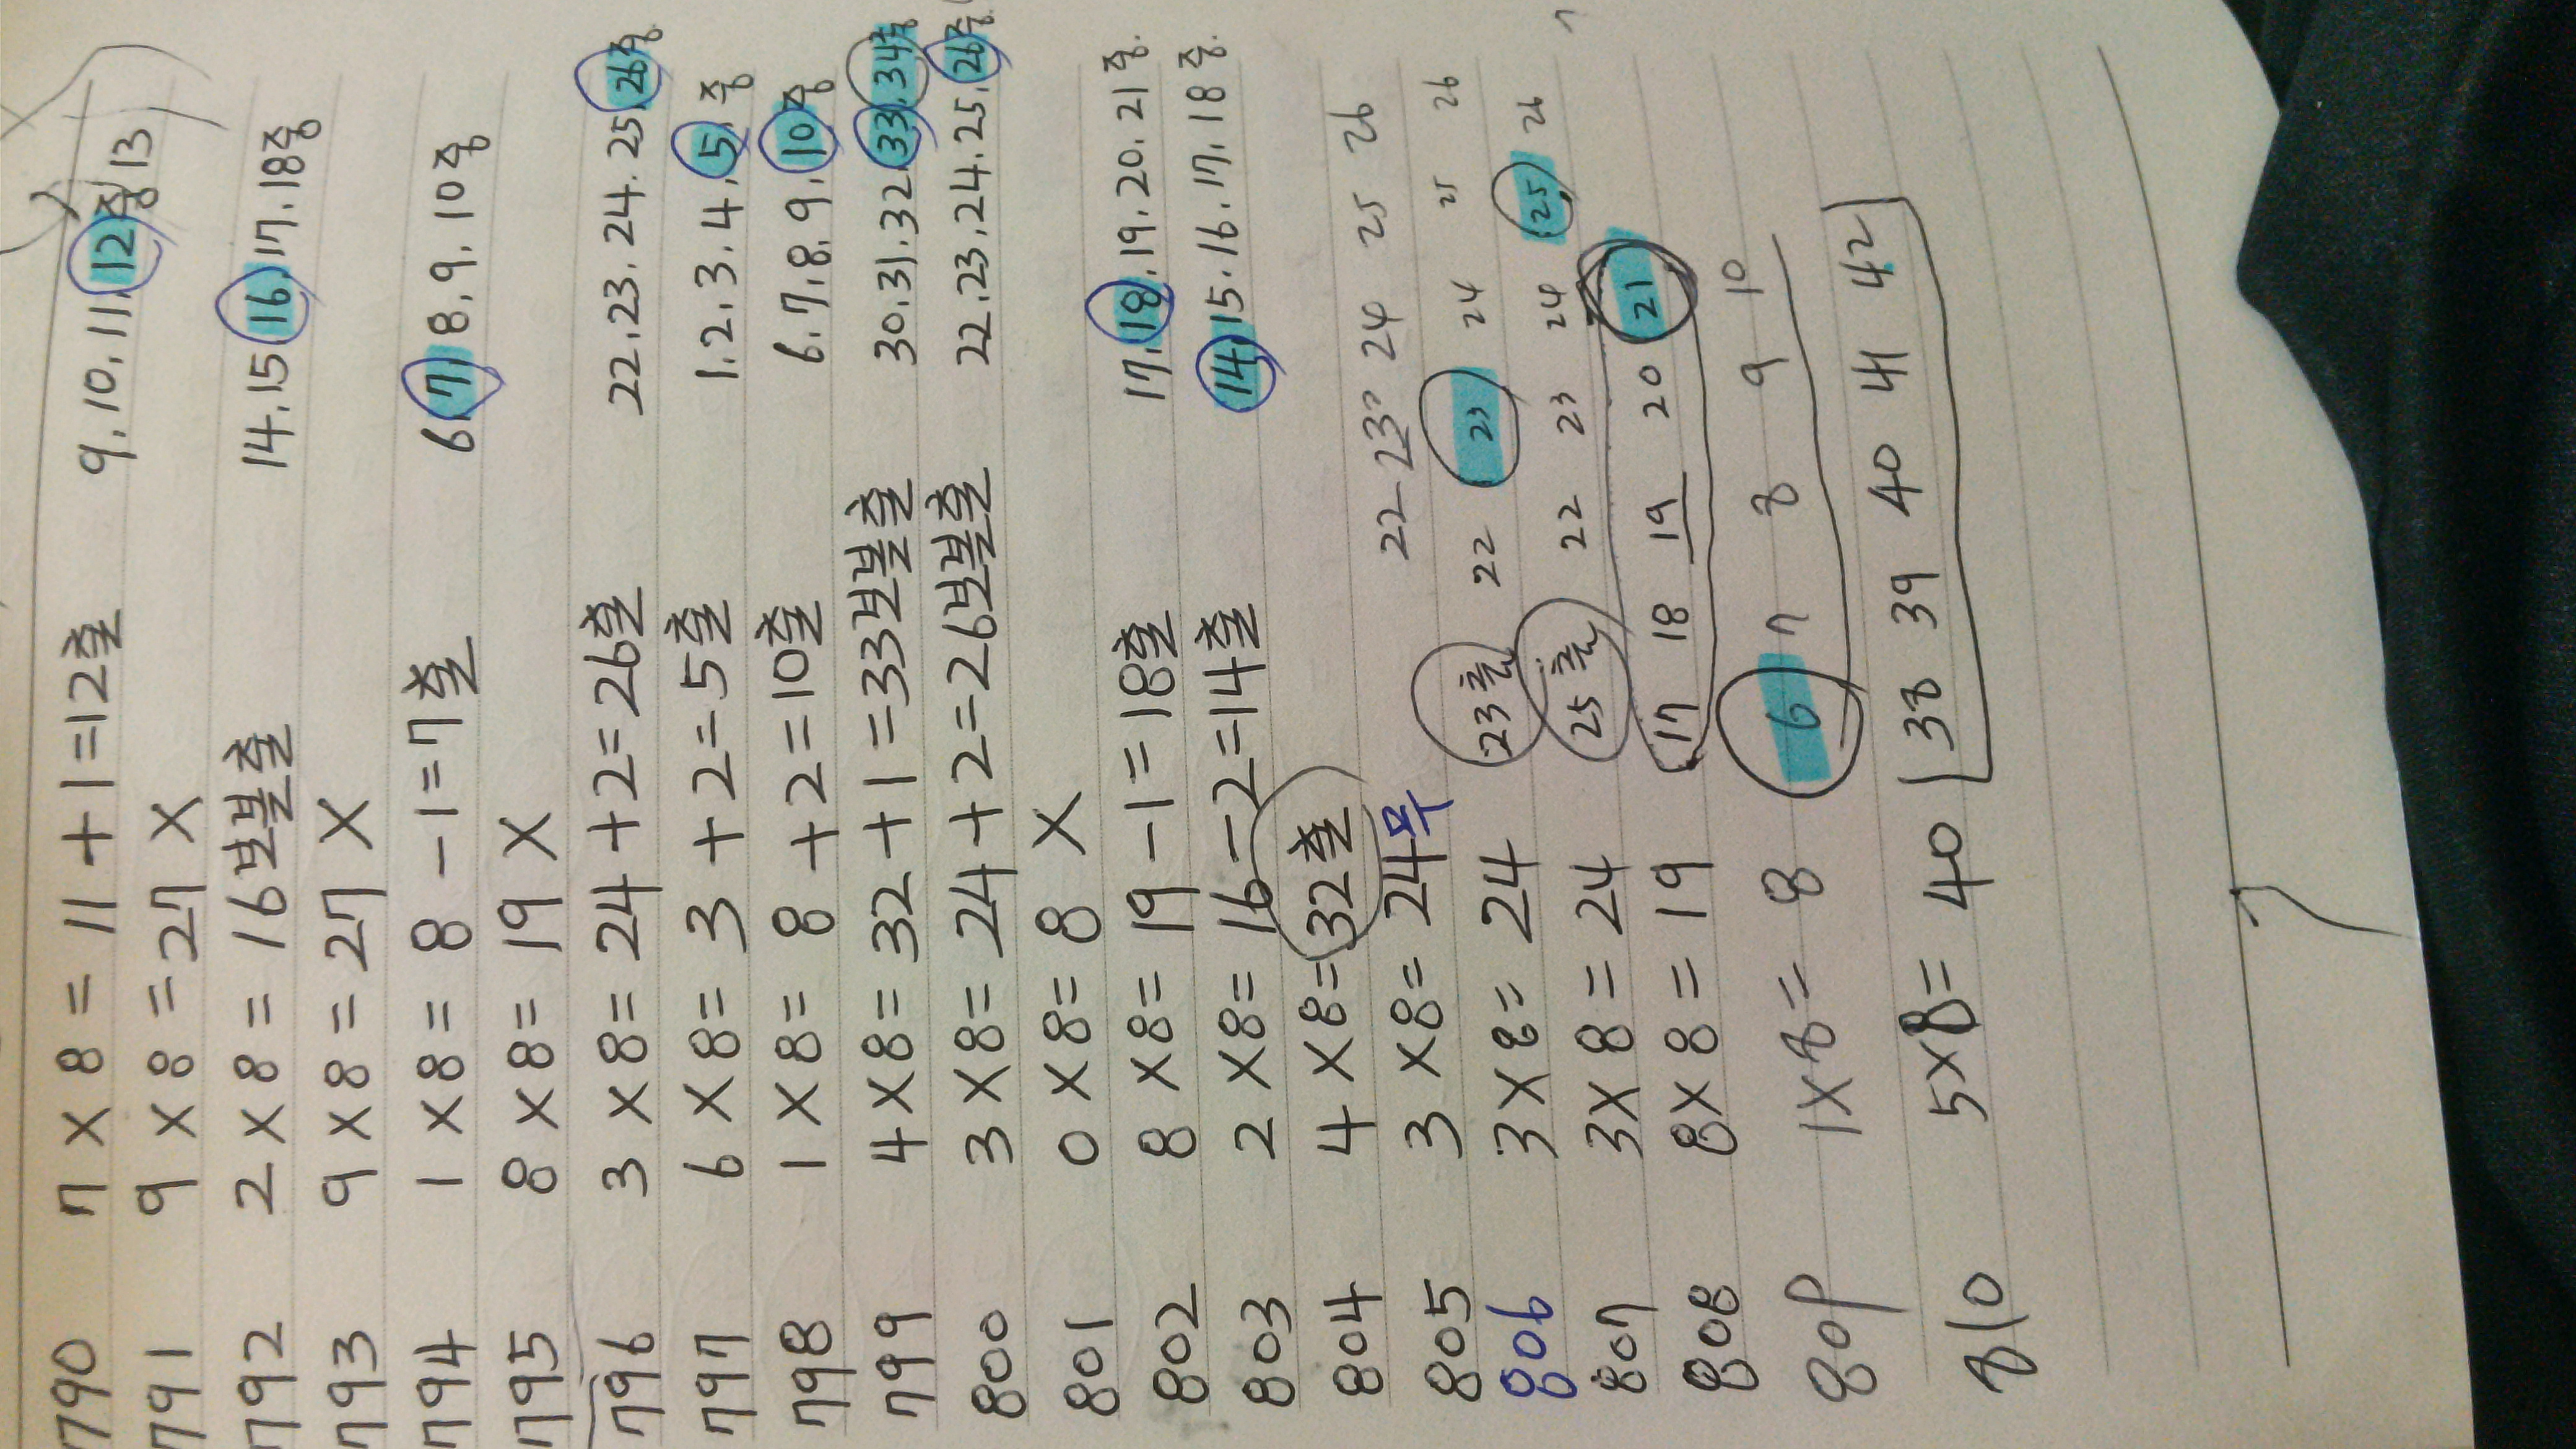 790 7×8=11+1=12출 9.10.11.12중13
791 9×8=27 X
792 2×8=16보볼출 14.15.16.17.18중
793 9×8=27 X
794 1×8=8-1=7출 6.7.8.9.10중
795 8×8=19 X
796 3×8=24+2=26출 22.23.24.25.26중
797 6×8=3+2=5출 1.2.3.4.5.중
798 1×8=8+2=10출 6.7.8.9.10중
799 4×8=32+1=33보볼출 30.31.32.33.34중
800 3×8=24+2=26보볼출 22.23.24.25.26중
801 0×8=8 X
802 8×8=19-1=18출 17.18.19.20.21중.
803 2×8=16-2=14출 14.15.16.17.18중.
804 4×8=32출
805 3×8=24무 22 23 24 25 26
806 3×8=24 23출 22 23 24 25 26
807 3×8=24 25출 22 23 24 25 26
808 8×8=19 17 18 19 20 21
809 1×8=8 6 7 8 9 10
810 5×8=40 38 39 40 41 42